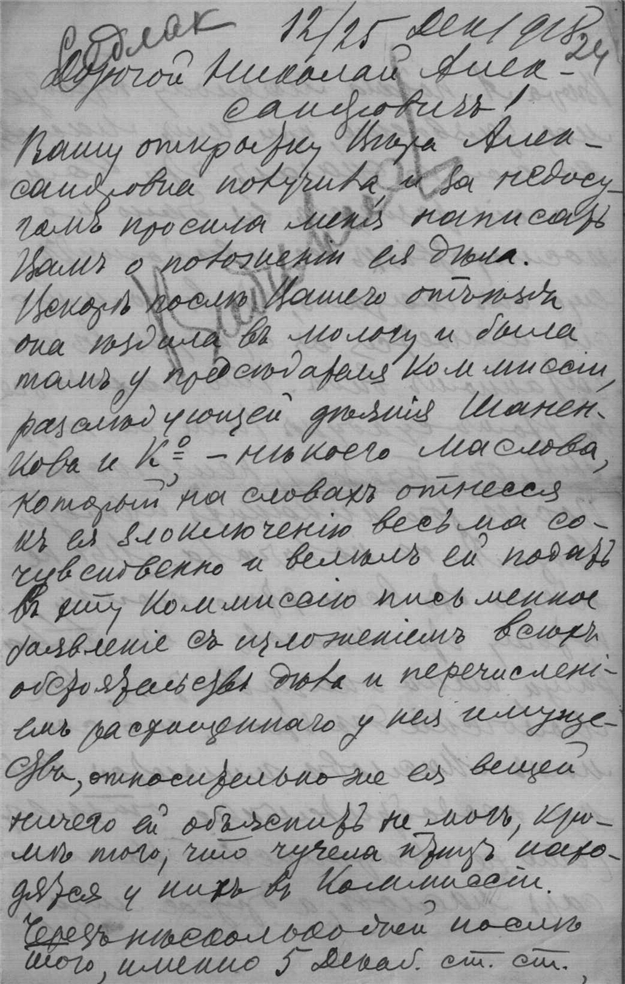 Судлак
12/25 Дек 1918
24
Дорогой Николай Алек-
сандровичъ!
Вашу открытку Вѣра Алек-
сандровна получила и за недосу-
гомъ просила меня написать
Вамъ о положеніи ея дѣла.
Вскорѣ послѣ Вашего отъѣзда
она ѣздила въ Мологу и была
тамъ у предсѣдателя Коммиссіи,
разслѣдующей дѣянія Шанен-
кова и Кº – нѣкоего Маслова,
который на словахъ отнесся
къ ея злоключенію весьма со-
чувственно и велѣлъ ей подать
въ эту Коммиссію письменное
заявленіе съ изложеніемъ всѣхъ
обстоятельствъ дѣла и перечислені-
емъ расхищеннаго у нея имуще-
ства, относительно же ея вещей
ничего ей объяснить не могъ, кро-
мѣ того, что чучела птицъ нахо-
дятся у нихъ въ Коммиссіи.
Черезъ нѣсколько дней послѣ
того, именно 5 Декаб. ст. ст.,